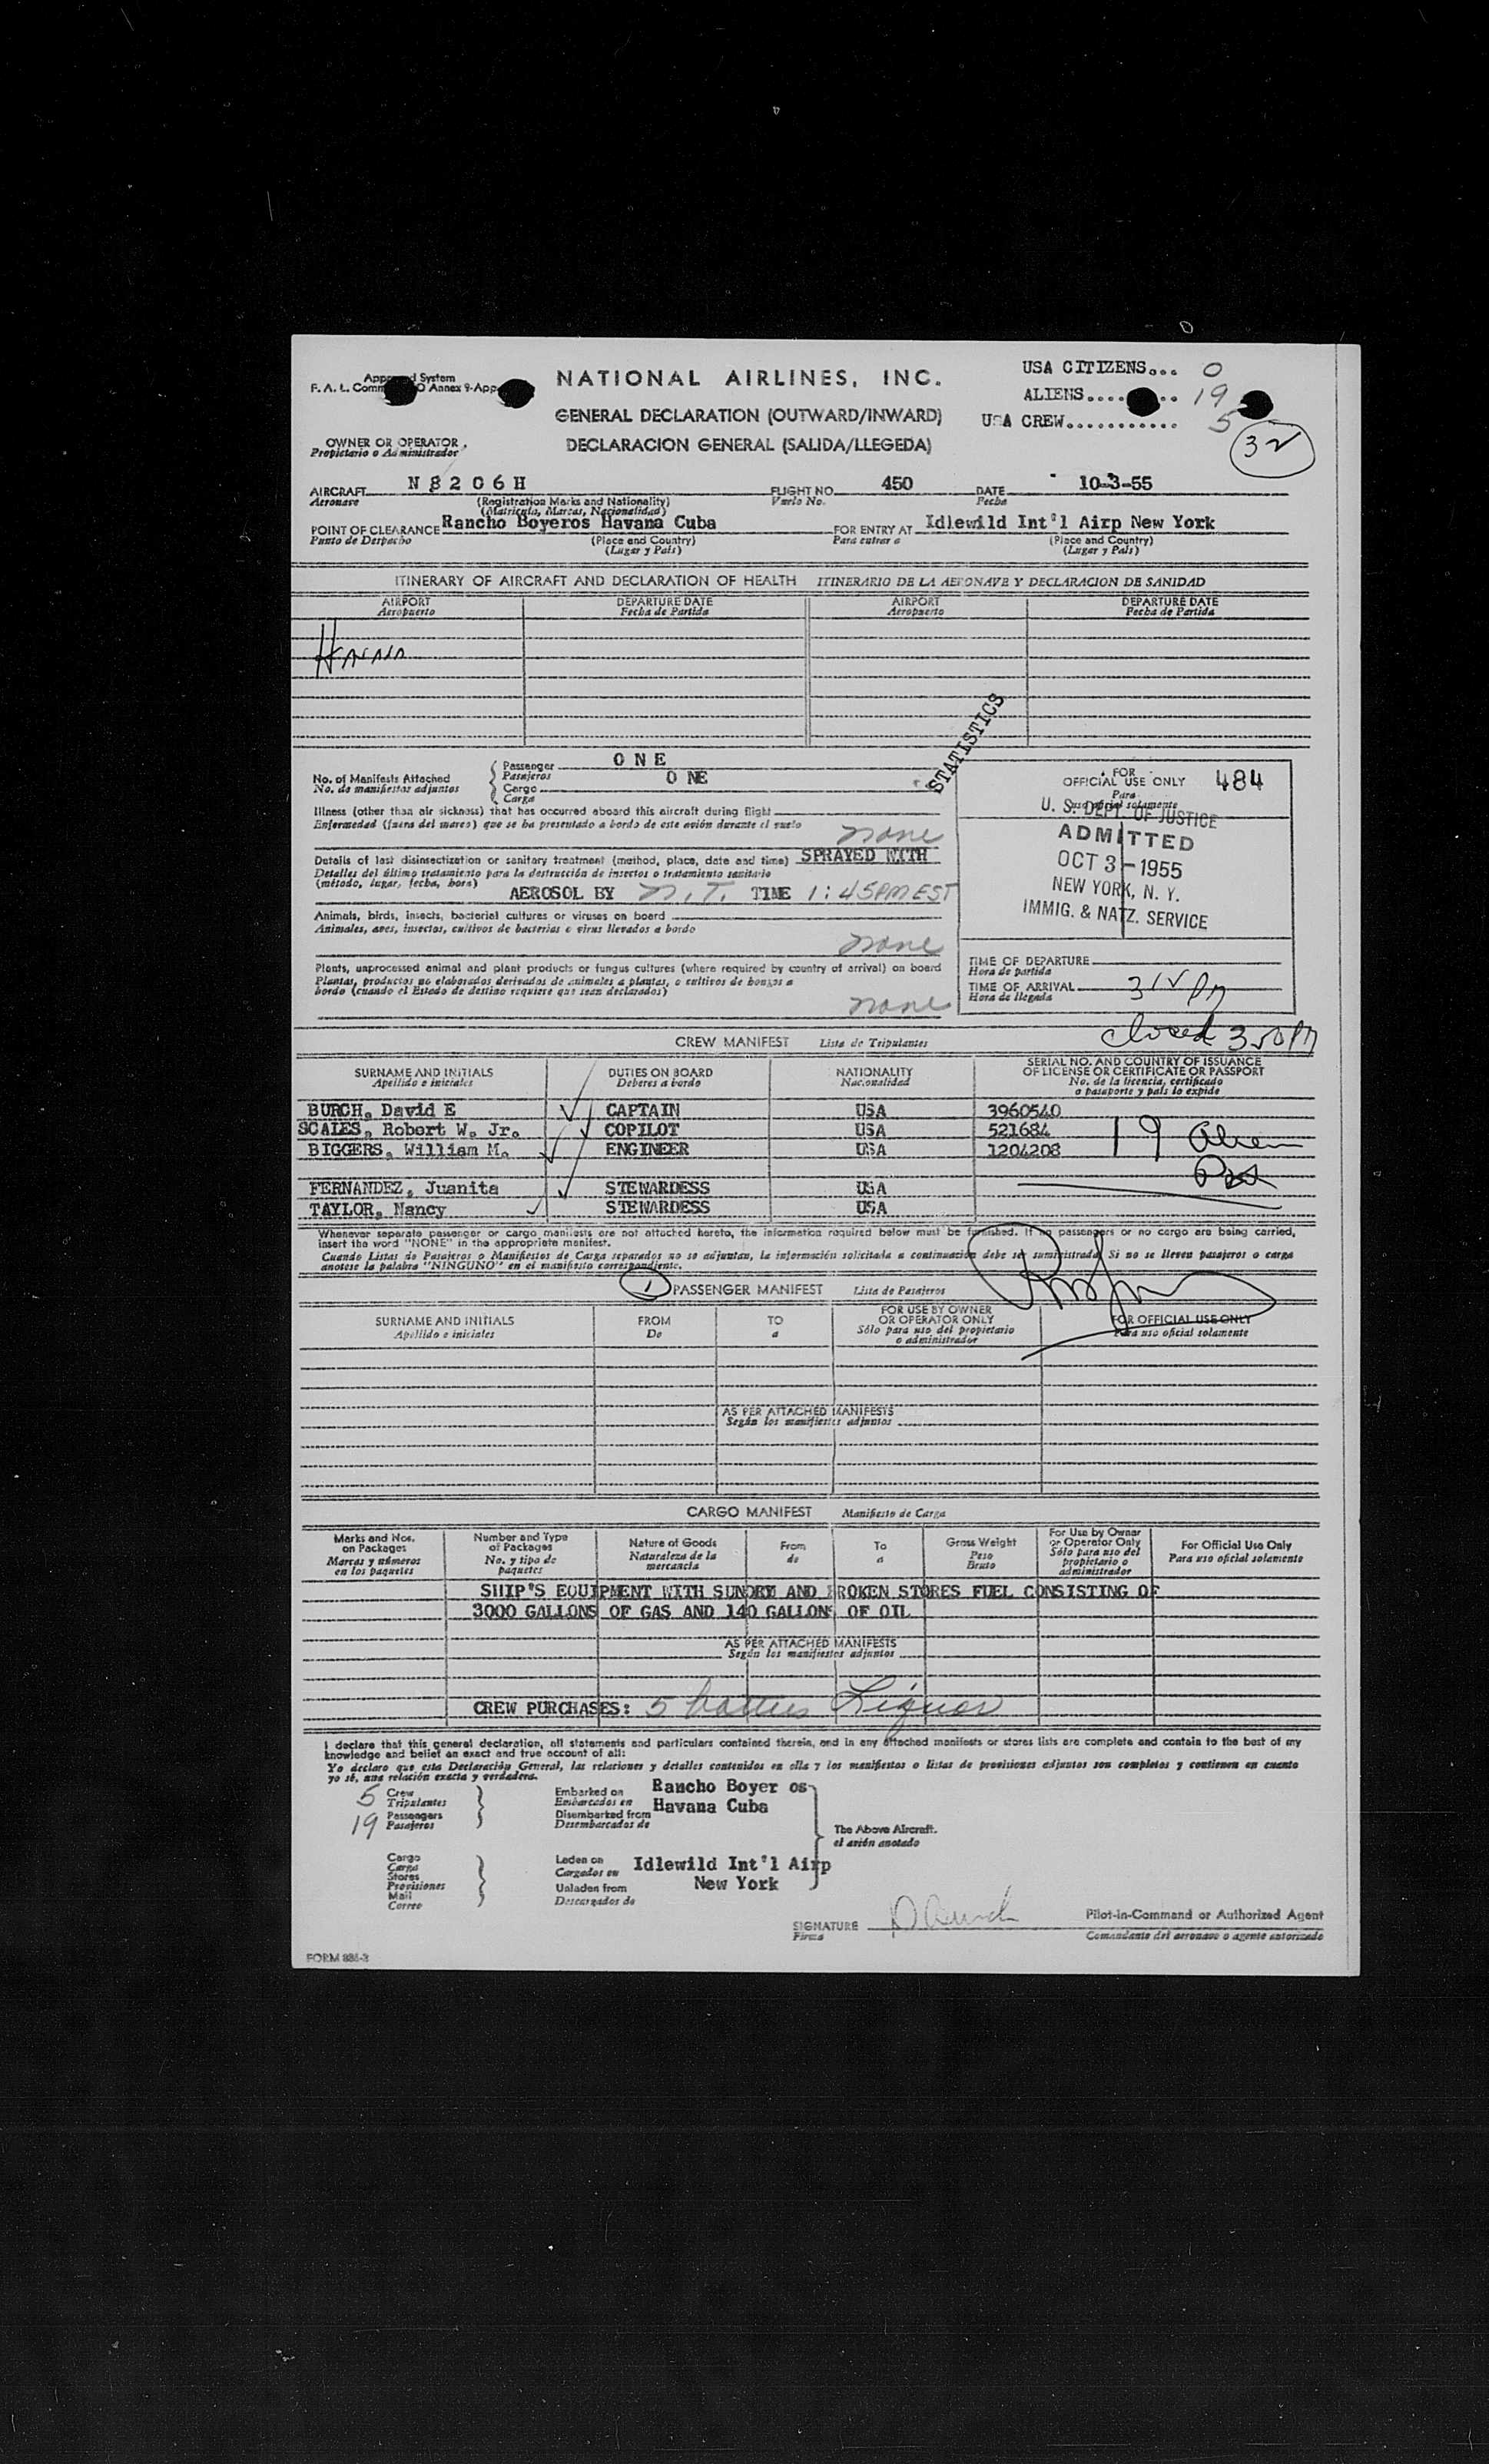 USA CITIZENS... 0
Approved System
NATIONAL AIRLINES, INC.
F. A. L. Comm O Annex 9-App
ALIENS.... .. 19
GENERAL DECLARATION (OUTWARD/INWARD)
USA CREW............ 5
OWNER OR OPERATOR
DECLARACION GENERAL (SALIDA/LLEGEDA)
32
Propietario o Administrador
AIRCRAFT N 8 2 0 6 H FLIGHT NO. 450 DATE 10-3-55
Aeronave (Registration Marks and Nationality) Vuelo No. Fecha
(Matricula, Marcas, Nacionalidad)
POINT OF CLEARANCE Rancho Boyeros Havana Cuba FOR ENTRY AT Idlewild Int'l Airp New York
Punto de Derpacho (Place and Country) Para entrar a (Place and Country)
(Lugar y País) (Lugar y País)
ITINERARY OF AIRCRAFT AND DECLARATION OF HEALTH ITINERARIO DE LA AERONAVE Y DECLARACION DE SANIDAD
AIRPORT DEPARTURE DATE AIRPORT DEPARTURE DATE
Aeropuerto Fecha de Partida Aeropuerto Fecha de Partida
STATISTICS
No. of Manifests Attached Passenger O N E
No. de manifiestos adjuntos Pasajeros
Cargo O NE
Carga
FOR
OFFICIAL USE ONLY 484
Para
uso oficial solamente
U. S. DEPT. OF JUSTICE
ADMITTED
OCT 3 - 1955
NEW YORK, N. Y.
IMMIG. & NATZ. SERVICE
Illness (other than air sickness) that has occurred aboard this aircraft during flight
Enfermedad (fuera del mareo) que se ha presentado a bordo de este avión durante el vuelo none
Details of last disinsectization or sanitary treatment (method, place, date and time) SPRAYED WITH
Detalles del último tratamiento para la destrucción de insectos o tratamiento sanitario
(método, lugar, fecha, hora) AEROSOL BY N.T. TIME 1:45PM EST
Animals, birds, insects, bacterial cultures or viruses on board
Animales, aves, insectos, cultivos de bacterias o virus llevados a bordo none
Plants, unprocessed animal and plant products or fungus cultures (where required by country of arrival) on board
Plantas, productos no elaborados derivados de animales a plantas, o cultivos de hongos a
bordo (cuando el Estado de destino requiere que sean declarados) none
TIME OF DEPARTURE
Hora de partida
TIME OF ARRIVAL
Hora de llegada
closed 3 50 PM
CREW MANIFEST Lista de Tripulantes
SURNAME AND INITIALS DUTIES ON BOARD NATIONALITY SERIAL NO. AND COUNTRY OF ISSUANCE
Apellido e iniciales Deberes a bordo Nacionalidad OF LICENSE OR CERTIFICATE OR PASSPORT
No. de la licencia, certificado
o pasaporte y país lo expide
BURCH, David E CAPTAIN USA 3960540
SCALES, Robert W. Jr. COPILOT USA 521684
BIGGERS, William M. ENGINEER USA 1204208
19 Alien
FERNANDEZ, Juanita STEWARDESS USA
TAYLOR, Nancy STEWARDESS USA
Whenever separate passenger or cargo manifests are not attached hereto, the information required below must be furnished. If no passengers or no cargo are being carried,
insert the word "NONE" in the appropriate manifest.
Cuando Listas de Pasajeros o Manifiestos de Carga separados no se adjuntan, la información solicitada a continuación debe ser suministrada. Si no se lleven pasajeros o carga
anotese la palabra "NINGUNO" en el manifiesto correspondiente.
1 PASSENGER MANIFEST Lista de Pasajeros
SURNAME AND INITIALS FROM TO FOR USE BY OWNER FOR OFFICIAL USE ONLY
Apellido e iniciales De a OR OPERATOR ONLY Para uso oficial solamente
Sólo para uso del propietario
o administrador
AS PER ATTACHED MANIFESTS
Según los manifiestos adjuntos
CARGO MANIFEST Manifiesto de Carga
Marks and Nos. Number and Type Nature of Goods From To Gross Weight For Use by Owner For Official Use Only
on Packages of Packages Naturaleza de la de a Peso or Operator Only Para uso oficial solamente
Marcas y números No. y tipo de mercancia Bruto Sólo para uso del
en los paquetes paquetes propietario o
administrador
SHIP'S EQUIPMENT WITH SUNDRY AND BROKEN STORES FUEL CONSISTING OF
3000 GALLONS OF GAS AND 140 GALLONS OF OIL
AS PER ATTACHED MANIFESTS
Según los manifiestos adjuntos
CREW PURCHASES: 5 bottles Liquor
I declare that this general declaration, all statements and particulars contained therein, and in any attached manifests or stores lists are complete and contain to the best of my
knowledge and belief an exact and true account of all:
Yo declaro que esta Declaración General, las relaciones y detalles contenidos en ella y los manifiestos o listas de provisiones adjuntos son completos y contienen en cuanto
yo sé, una relación exacta y verdadera.
5 Crew Embarked on Rancho Boyer os
Tripulantes Embarcados en Havana Cuba
19 Passengers Disembarked from
Pasajeros Desembarcados de
The Above Aircraft.
el avión anotado
Cargo Laden on Idlewild Int'l Airp
Carga Cargados en
Stores New York
Provisiones Unladen from
Mail Descargados de
Correo
SIGNATURE Pilot-in-Command or Authorized Agent
Firma Comandante del aeronave o agente autorizado
FORM 886-3